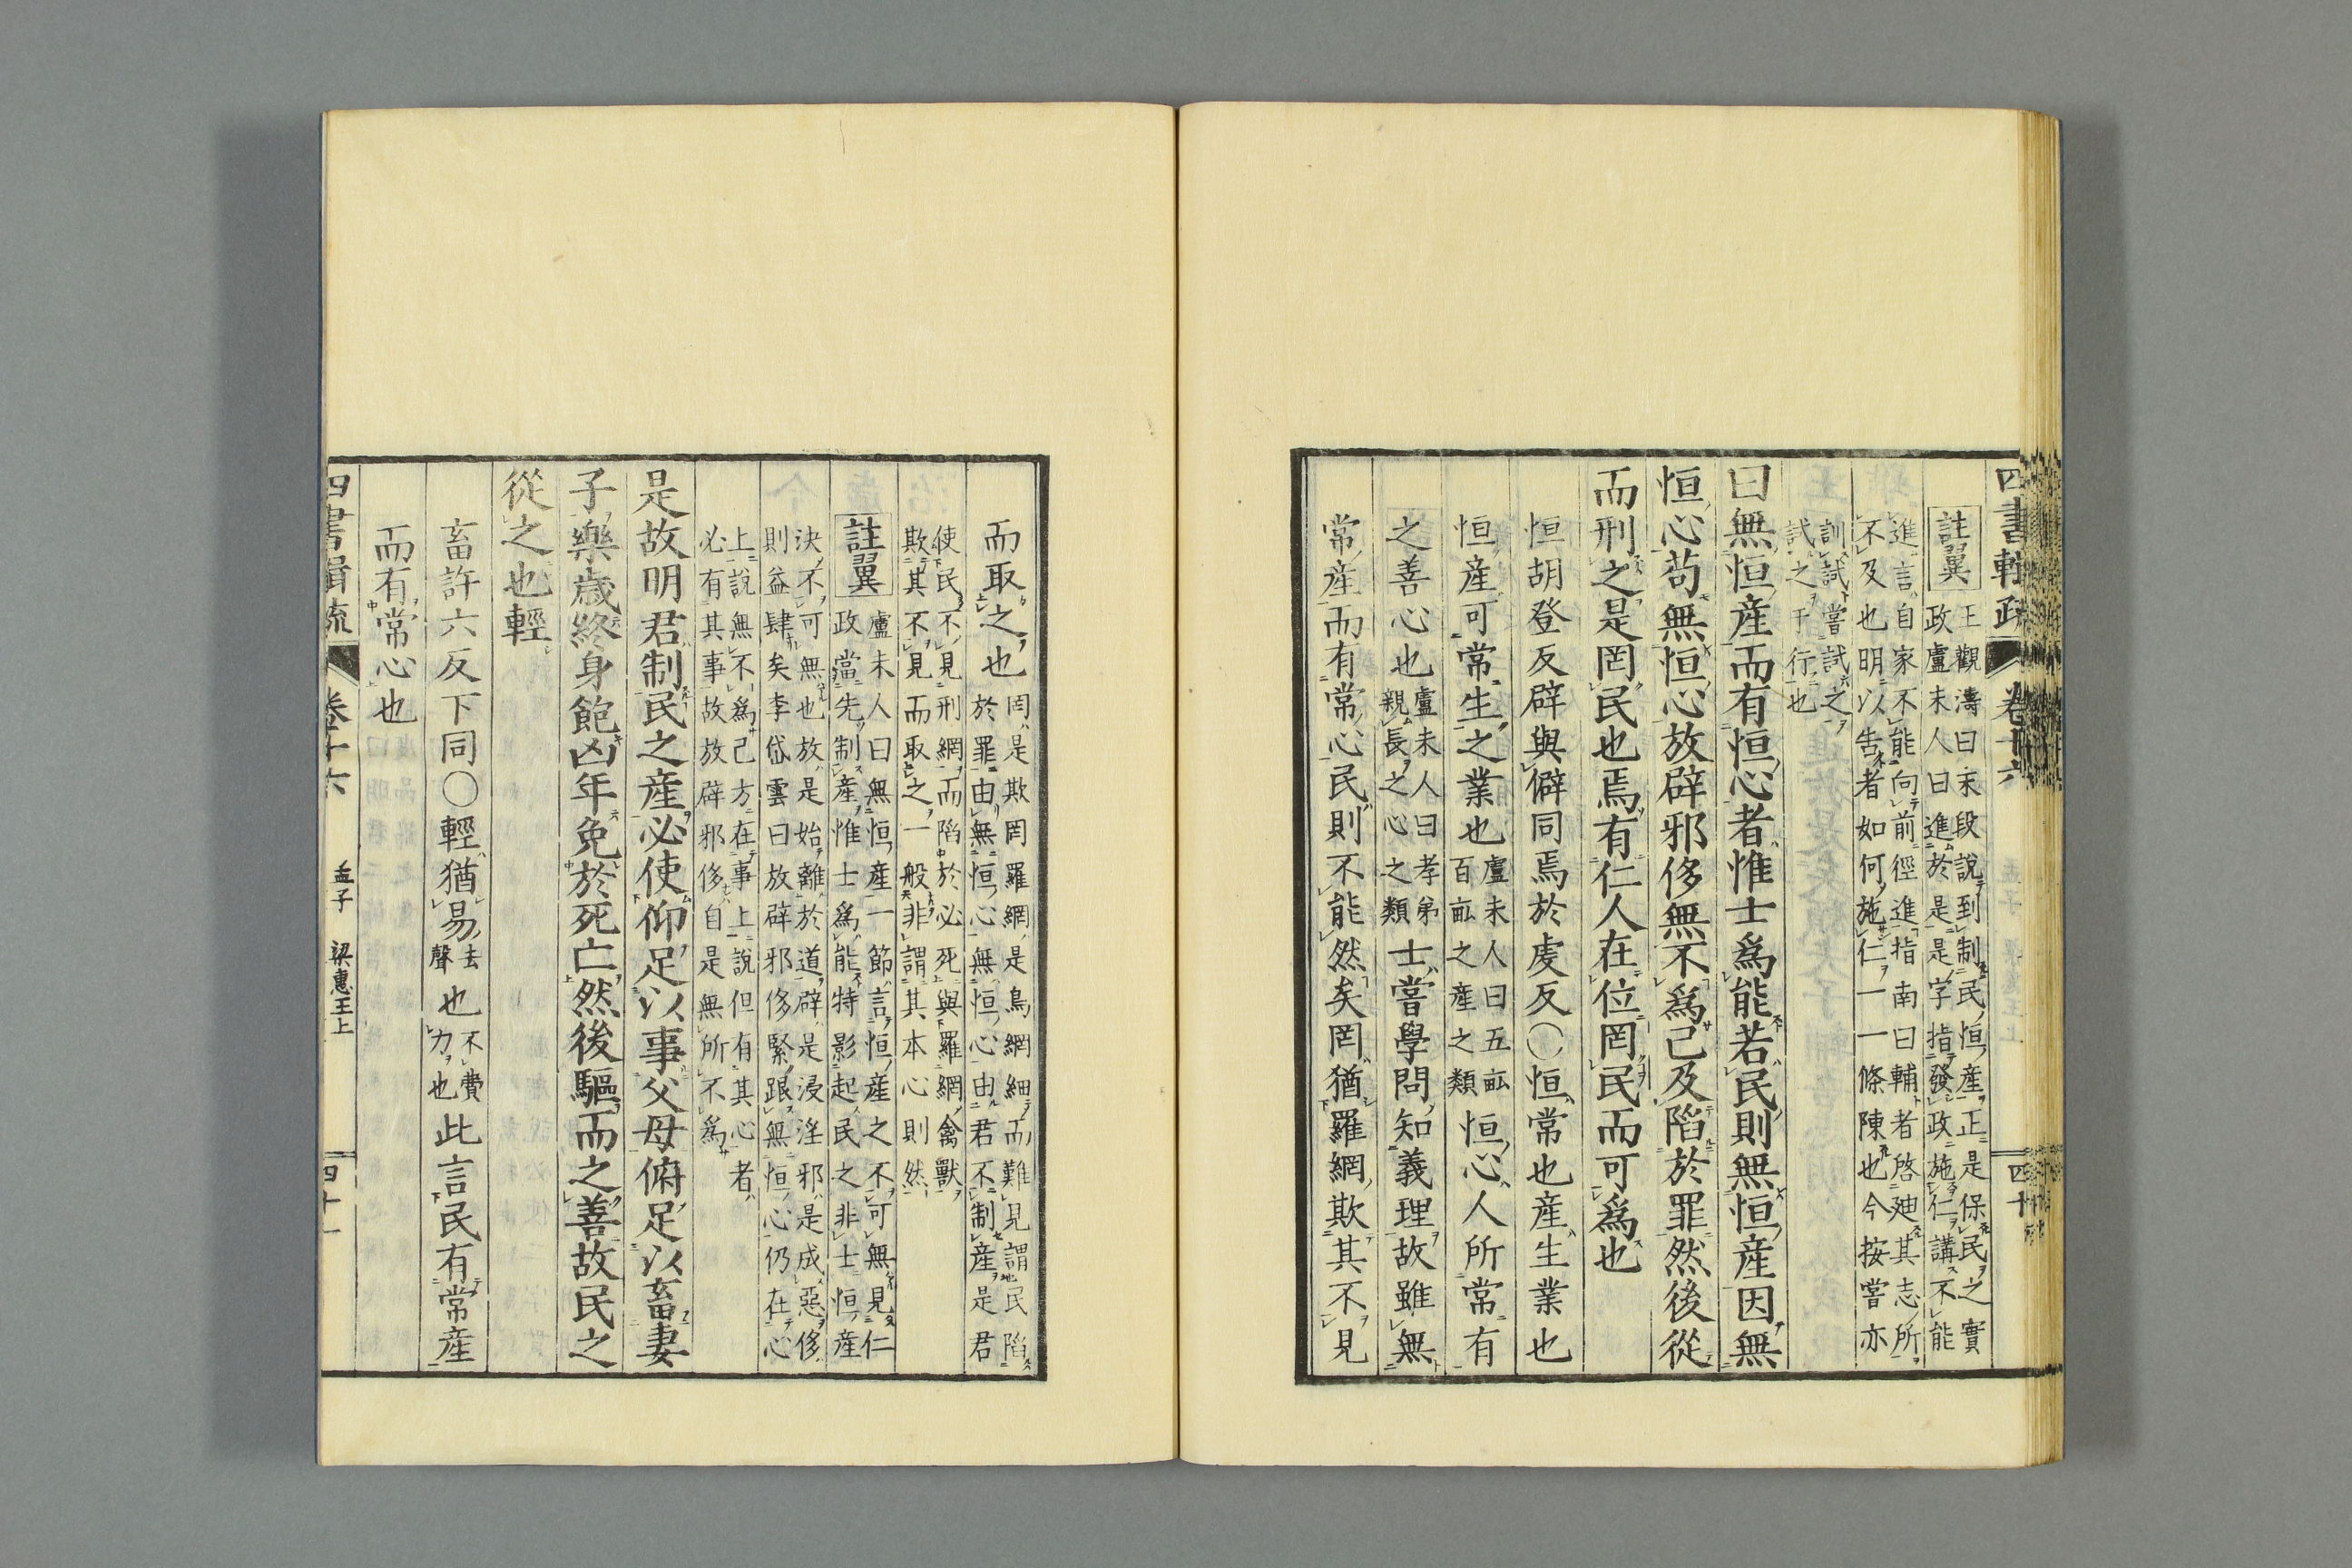 四書輯疏 卷十六 四十
註翼 王觀濤曰末段說到制民恒產正是保民之實
政盧未人曰進於是是字指發政施仁講不能
進言自家不能向前徑進指南曰輔者啓廸其志所
不及也明以告者如何施仁一一條陳也今按嘗亦
訓試嘗試之
試之于行也
曰無恒產而有恒心者惟士爲能若民則無恒產因無
恒心苟無恒心放辟邪侈無不爲己及陷於罪然後從
而刑之是罔民也焉有仁人在位罔民而可爲也
恒胡登反辟與僻同焉於虔反○恒常也產生業也
恒產可常生之業也盧未人曰五畝百畝之產之類恒心人所常有
之善心也盧未人曰孝弟親長之心之類士嘗學問知義理故雖無
常產而有常心民則不能然矣罔猶羅網欺其不見
而取之也罔是欺罔羅網是鳥網細而難見謂民陷
於罪由無恒心無恒心由君不制產是君
使民不見刑網而陷於必死與羅網禽獸
欺其不見而取之一般非謂其本心則然
註翼 盧未人曰無恒產一節言恒產之不可無見仁
政當先制產惟士爲能特影起民之非士恒產
決不可無也放是始離於道辟是浸淫邪是成惡侈
則益肆矣李岱雲曰放辟邪侈緊跟無恒心仍在心
上說無不爲己方在事上說但有其心者
必有其事故放辟邪侈自是無所不爲
是故明君制民之產必使仰足以事父母俯足以畜妻
子樂歲終身飽凶年免於死亡然後驅而之善故民之
從之也輕
畜許六反下同○輕猶易去聲也不費力也此言民有常產
而有常心也
四書輯疏 卷十六 孟子 梁惠王上 四十一